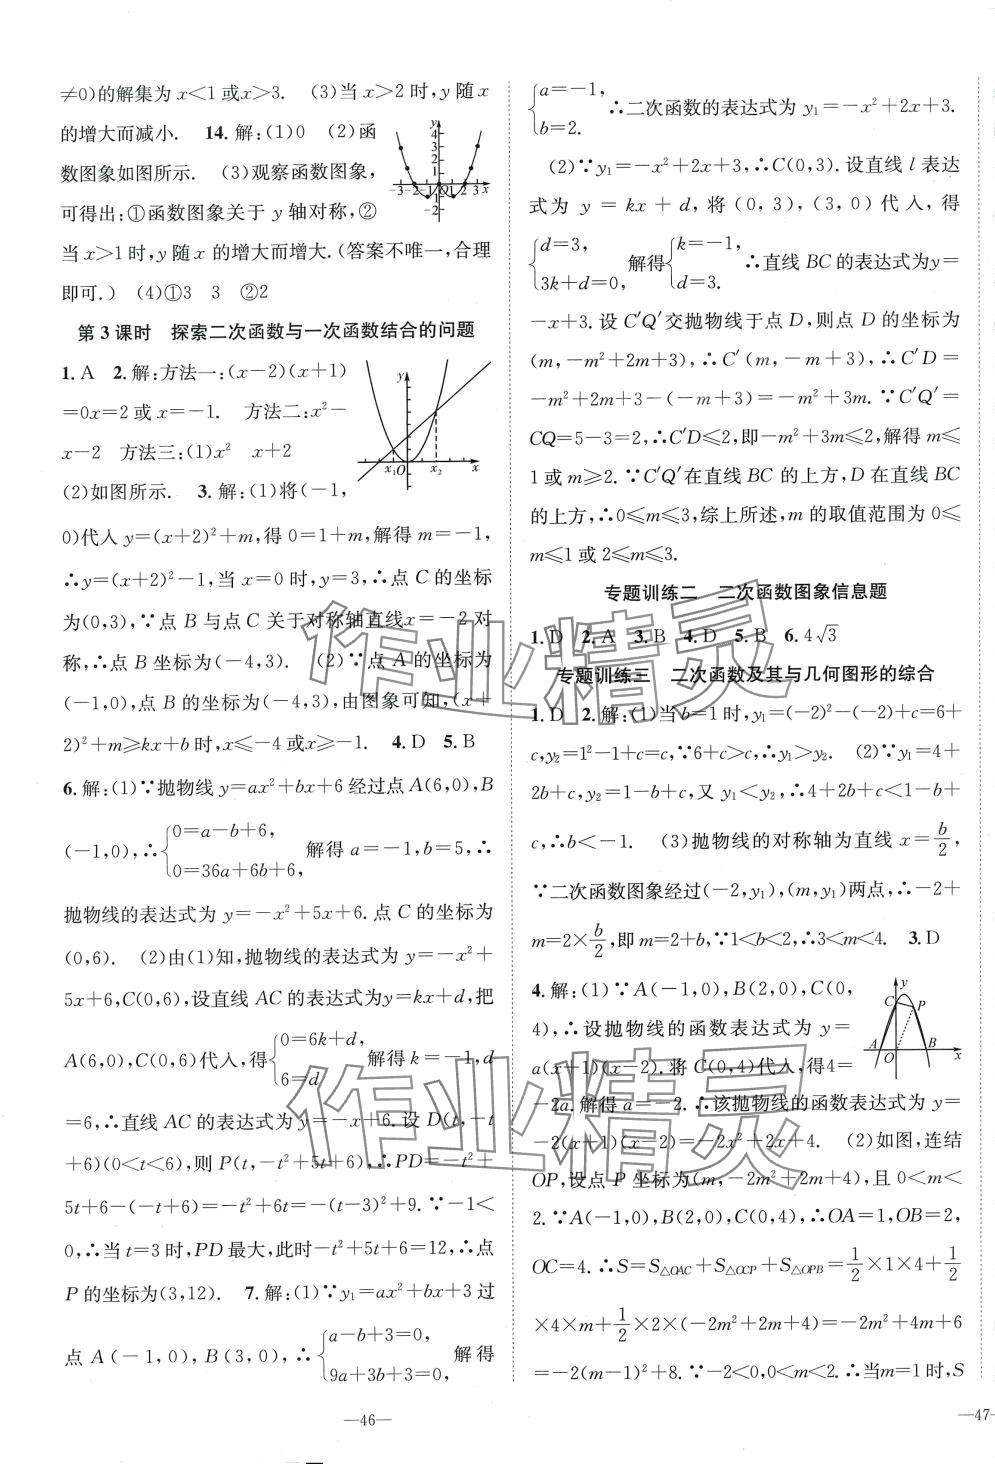 ≠0)的解集为 x<1 或x>3.　(3)当 x>2 时,y 随 x
的增大而减小.　14.解:(1)0　(2)函
数图象如图所示.　(3)观察函数图象,
可得出:①函数图象关于 y 轴对称,②
当 x>1 时,y 随 x 的增大而增大.(答案不唯一,合理
即可.)　(4)①3　3　②2
第 3 课时　探索二次函数与一次函数结合的问题
1.A　2.解:方法一:(x−2)(x+1)
=0x=2 或 x=−1.　方法二:x²−
x−2　方法三:(1)x²　x+2
(2)如图所示.　3.解:(1)将(−1,
0)代入 y=(x+2)²+m,得 0=1+m,解得 m=−1,
∴y=(x+2)²−1,当 x=0 时,y=3,∴点 C 的坐标
为(0,3),∵点 B 与点 C 关于对称轴直线x=−2 对
称,∴点 B 坐标为(−4,3).　(2)∵点 A 的坐标为
(−1,0),点 B 的坐标为(−4,3),由图象可知,(x+
2)²+m≥kx+b 时,x≤−4 或x≥−1.　4.D　5.B
6.解:(1)∵抛物线 y=ax²+bx+6 经过点 A(6,0),B
(−1,0),∴{0=a−b+6, 0=36a+6b+6, 解得 a=−1,b=5,∴
抛物线的表达式为 y=−x²+5x+6.点 C 的坐标为
(0,6).　(2)由(1)知,抛物线的表达式为 y=−x²+
5x+6,C(0,6),设直线 AC 的表达式为y=kx+d,把
A(6,0),C(0,6)代入,得{0=6k+d, 6=d 解得 k=−1,d
=6,∴直线 AC 的表达式为 y=−x+6.设 D(t,−t
+6)(0<t<6),则 P(t,−t²+5t+6),∴PD=−t²+
5t+6−(−t+6)=−t²+6t=−(t−3)²+9.∵−1<
0,∴当 t=3 时,PD 最大,此时−t²+5t+6=12,∴点
P 的坐标为(3,12).　7.解:(1)∵y₁=ax²+bx+3 过
点 A(−1,0),B(3,0),∴{a−b+3=0, 9a+3b+3=0, 解得
—46—
{a=−1, b=2. ∴二次函数的表达式为 y₁=−x²+2x+3.
(2)∵y₁=−x²+2x+3,∴C(0,3).设直线 l 表达
式为 y=kx+d,将(0,3),(3,0)代入,得
{d=3, 3k+d=0, 解得{k=−1, d=3. ∴直线 BC 的表达式为y=
−x+3.设 C′Q′交抛物线于点 D,则点 D 的坐标为
(m,−m²+2m+3),∴C′(m,−m+3),∴C′D=
−m²+2m+3−(−m+3)=−m²+3m.∵C′Q′=
CQ=5−3=2,∴C′D≤2,即−m²+3m≤2,解得 m≤
1 或 m≥2.∵C′Q′在直线 BC 的上方,D 在直线 BC
的上方,∴0≤m≤3,综上所述,m 的取值范围为 0≤
m≤1 或 2≤m≤3.
专题训练二　二次函数图象信息题
1.D　2.A　3.B　4.D　5.B　6.4√3
专题训练三　二次函数及其与几何图形的综合
1.D　2.解:(1)当 b=1 时,y₁=(−2)²−(−2)+c=6+
c,y₂=1²−1+c=c,∵6+c>c,∴y₁>y₂.　(2)∵y₁=4+
2b+c,y₂=1−b+c,又 y₁<y₂,∴4+2b+c<1−b+
c,∴b<−1.　(3)抛物线的对称轴为直线 x=b/2,
∵二次函数图象经过(−2,y₁),(m,y₁)两点,∴−2+
m=2×b/2,即 m=2+b,∵1<b<2,∴3<m<4.　3.D
4.解:(1)∵A(−1,0),B(2,0),C(0,
4),∴设抛物线的函数表达式为 y=
a(x+1)(x−2).将 C(0,4)代入,得4=
−2a.解得 a=−2.∴该抛物线的函数表达式为 y=
−2(x+1)(x−2)=−2x²+2x+4.　(2)如图,连结
OP,设点 P 坐标为(m,−2m²+2m+4),且 0<m<
2.∵A(−1,0),B(2,0),C(0,4),∴OA=1,OB=2,
OC=4.∴S=S△OAC+S△OCP+S△OPB=1/2×1×4+1/2
×4×m+1/2×2×(−2m²+2m+4)=−2m²+4m+6
=−2(m−1)²+8.∵−2<0,0<m<2.∴当m=1 时,S
—47—
作业精灵
作业精灵